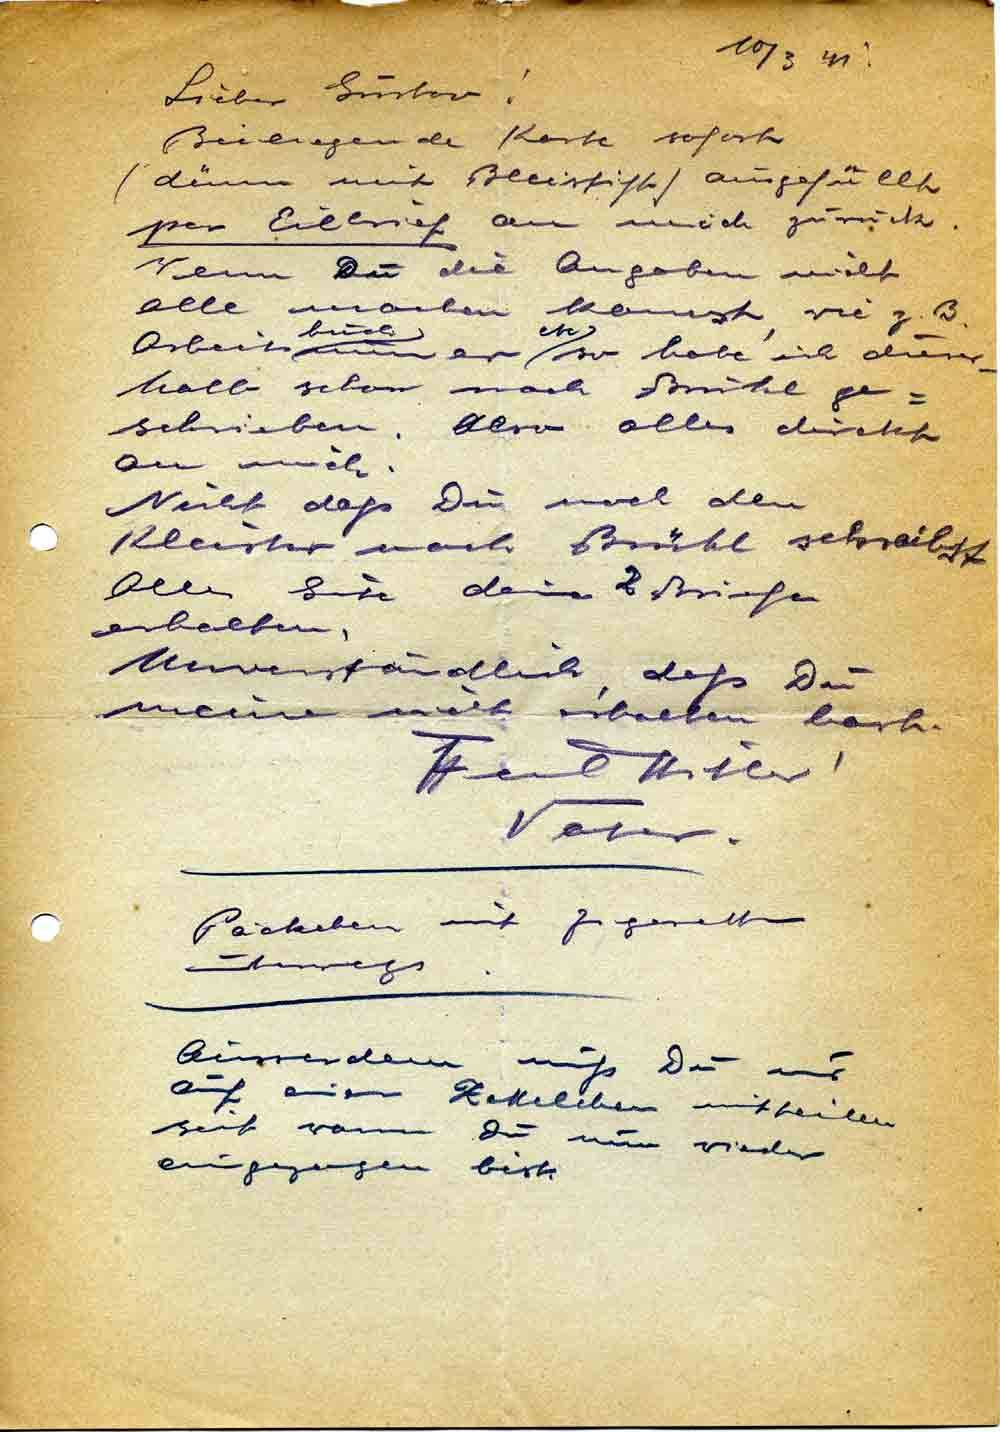 10/3 41.
Lieber Gustav!
Beiliegende Karte sofort
(dünn mit Bleistift) ausgefüllt
per Eilbrief an mich zurück.
Wenn Du die Angaben nicht
alle machen kannst, wie z. B.
Arbeitsbuch etc, so habe ich dieser-
halb schon nach Brühl ge=
schrieben. Also alles direkt
an mich.
Nicht dass Du noch den
nach Brühl schreibst
Alles Gute deine 2 Briefe
erhalten.
Unverständlich, dass Du
meine nicht erhalten hast.
Heil Hitler!
Vater.
Päckchen mit Zigaretten
unterwegs.
Ausserdem muss Du mir
auf einen Zettelchen mitteilen
seit wann Du nun wieder
eingezogen bist.